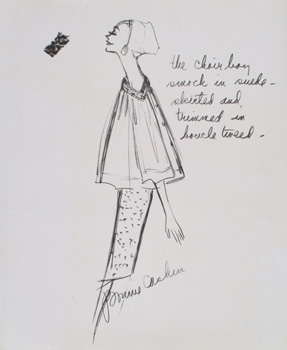 the choir boy
smock in suede -
skirted and
trimmed in
boucle tweed -
Bonnie Cashin